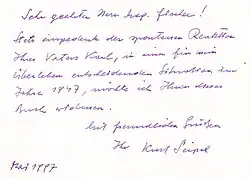 Sehr geehrter Herr Insp. Fischer!
Stets eingedenk der spontanen Reaktion
Ihres Vaters Karl, in einer für mein
Überleben entscheidenden Situation im
Jahre 1947, möchte ich Ihnen dieses
Buch widmen.
Mit freundlichen Grüßen
Ihr Kurt Seipel
Mai 1997